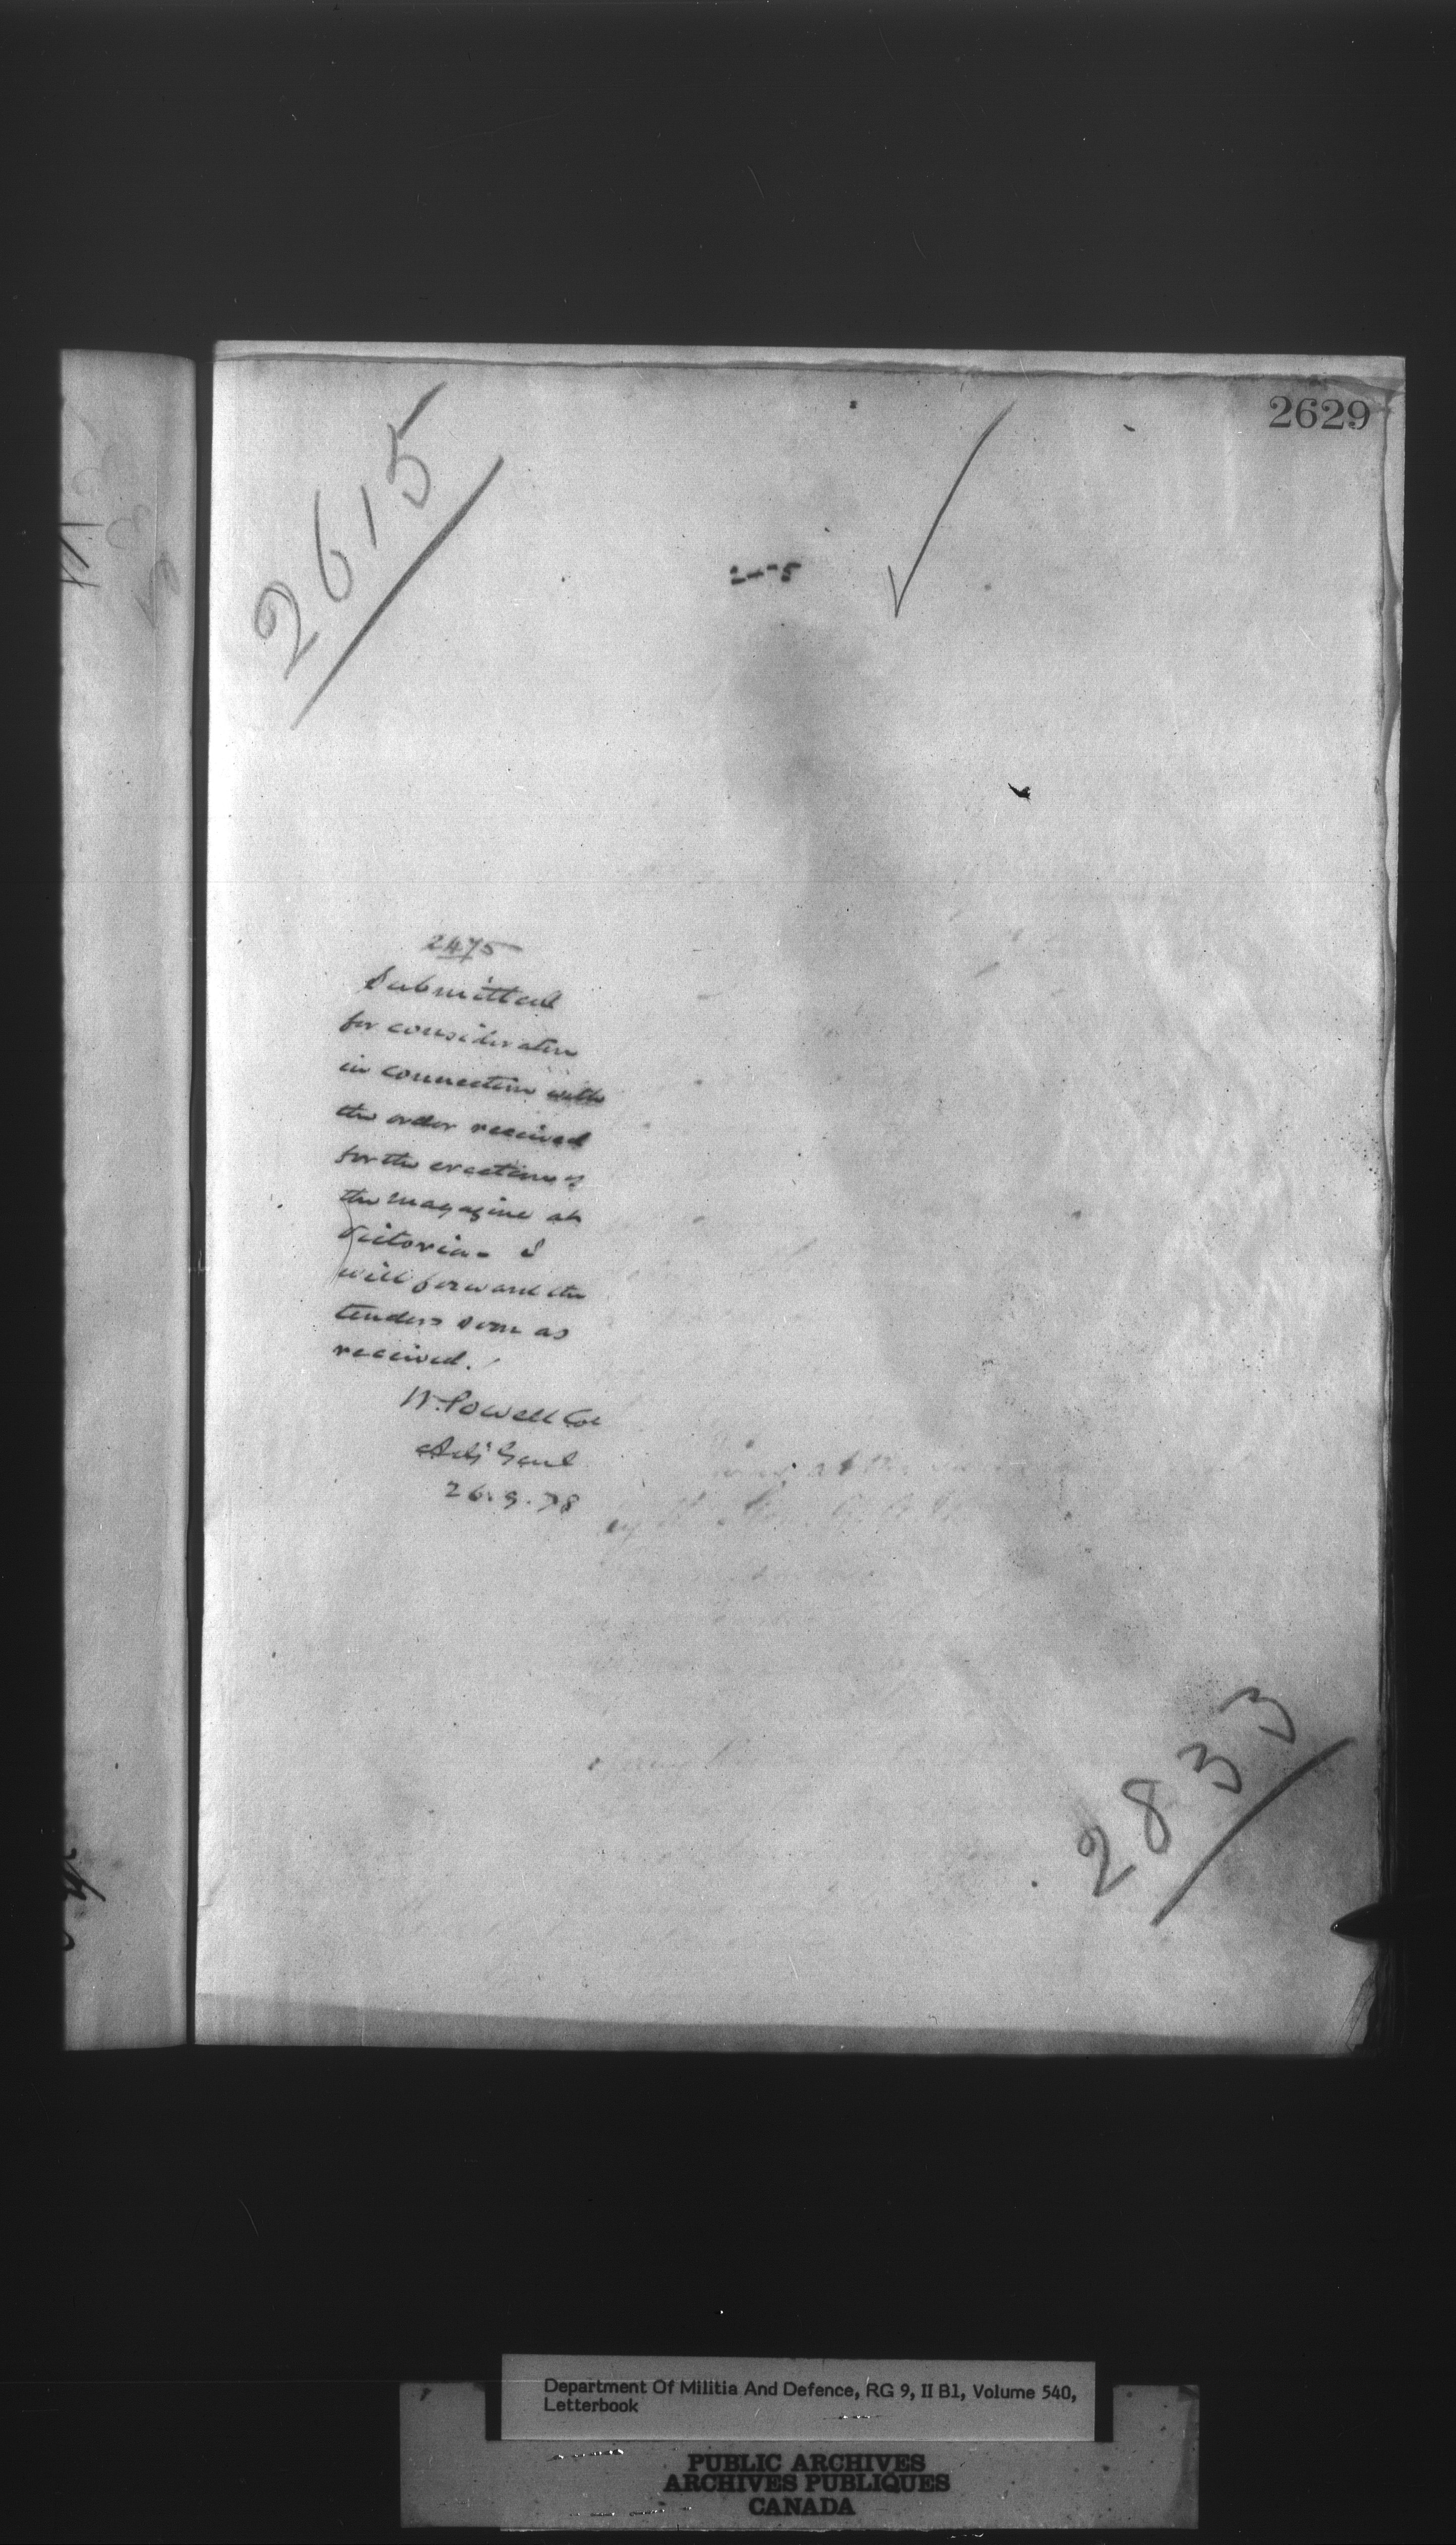 2629
2615
2475
Submitted
for consideration
in connection with
the order received
for the erection of
the magazine at
Victoria - I
will forward the
tenders soon as
received.
W. Powell Col
Adj Genl
26.9.78
2833
Department Of Militia And Defence, RG 9, II B1, Volume 540,
Letterbook
PUBLIC ARCHIVES
ARCHIVES PUBLIQUES
CANADA